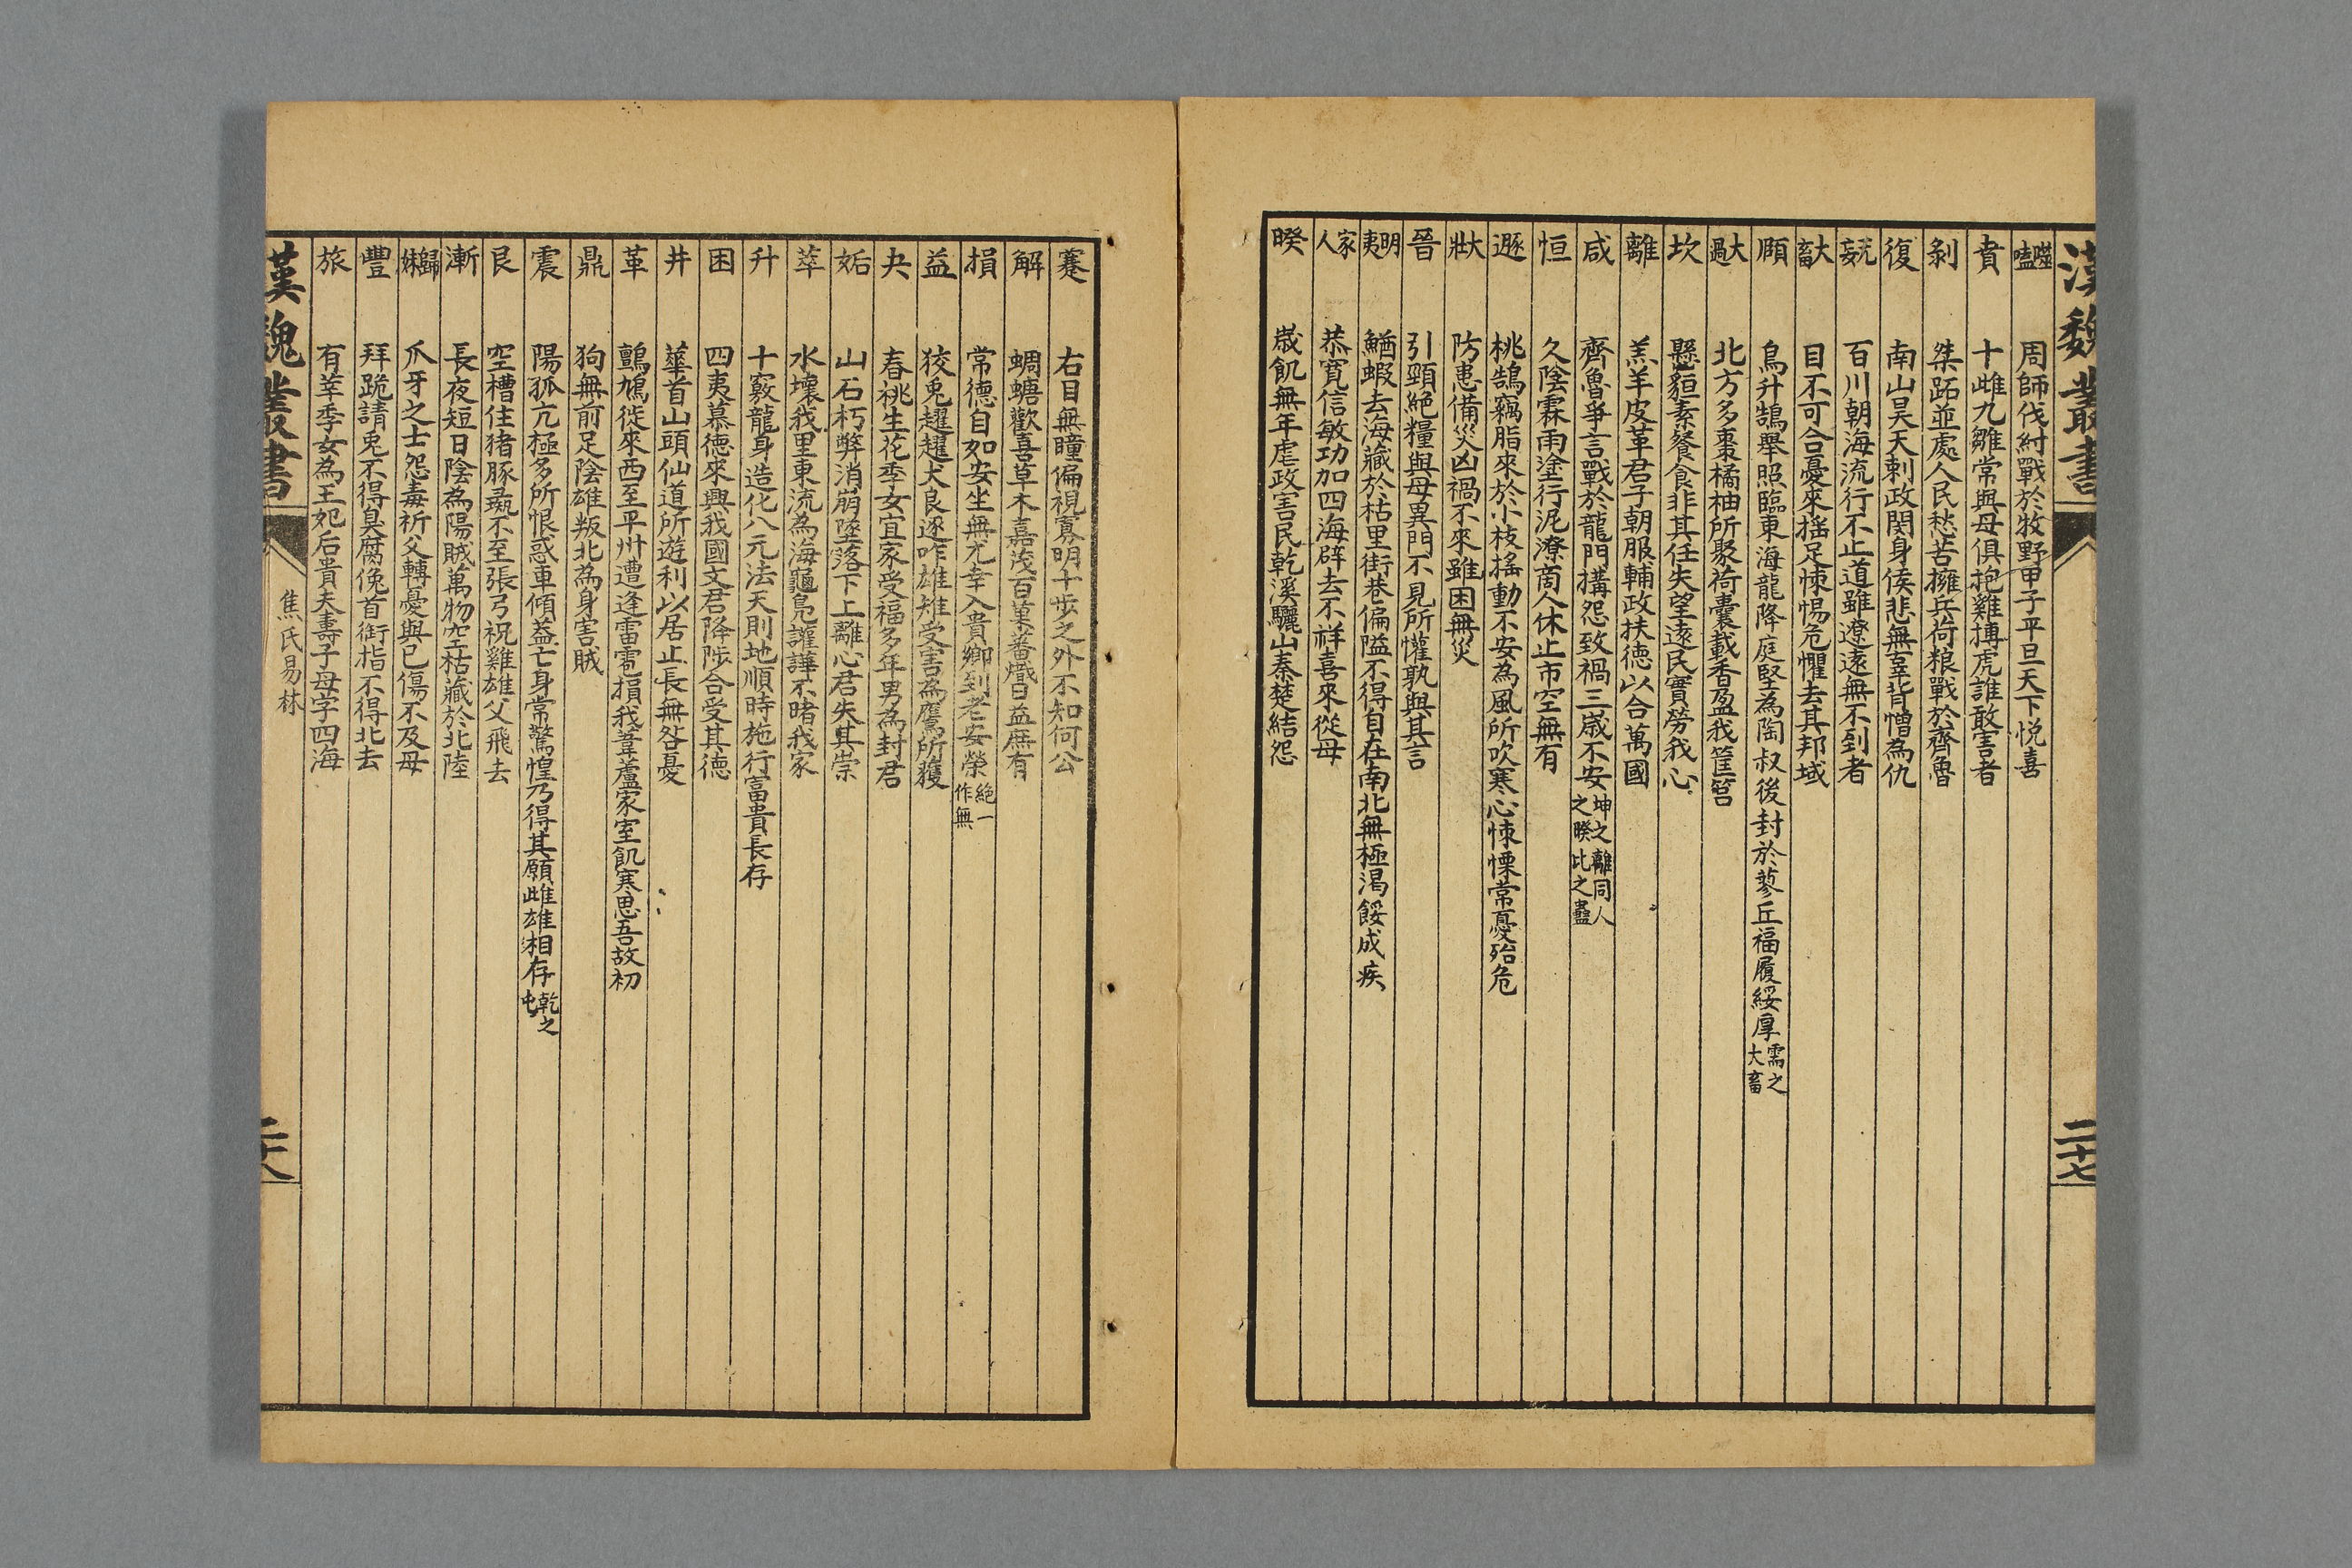 漢魏叢書
二十七
噬嗑 周師伐紂戰於牧野甲子平旦天下悦喜
賁 十雌九雛常與母俱抱雞搏虎誰敢害者
剝 桀跖並處人民愁苦擁兵荷粮戰於齊魯
復 南山昊天刺政閔身侯悲無辜背憎為仇
无妄 百川朝海流行不止道雖遼遠無不到者
大畜 目不可合憂來搖足悚惕危懼去其邦域
頤 鳥升鵠舉照臨東海龍降庭堅為陶叔後封於蓼丘福履綏厚 需之大畜
大過 北方多棗橘柚所聚荷囊載香盈我筐筥
坎 懸貆素餐食非其任失望遠民實勞我心
離 羔羊皮革君子朝服輔政扶德以合萬國
咸 齊魯爭言戰於龍門搆怨致禍三歲不安 坤之離同人之睽比之蠱
恒 久陰霖雨塗行泥潦商人休止市空無有
遯 桃鵲竊脂來於小枝搖動不安為風所吹寒心悚慄常憂殆危
大壯 防患備災凶禍不來雖困無災
晉 引頸絕糧與母異門不見所懽孰與其言
明夷 鰌蝦去海藏於枯里街巷偏隘不得自在南北無極渴餒成疾
家人 恭寬信敏功加四海辟去不祥喜來從母
睽 歲飢無年虐政害民乾溪驪山秦楚結怨
蹇 右目無瞳偏視寡明十步之外不知何公
解 蜩螗歡喜草木嘉茂百菓蕃熾日益庶有
損 常德自如安坐無尤幸入貴鄉到老安榮 絕一作無
益 狡兔趯趯犬良逐咋雄雉受害為鷹所獲
夬 春桃生花季女宜家受福多年男為封君
姤 山石朽弊消崩墜落下上離心君失其崇
萃 水壞我里東流為海龜鳧讙譁不睹我家
升 十竅龍身造化八元法天則地順時施行富貴長存
困 四夷慕德來興我國文君降陟合受其德
井 華首山頭仙道所遊利以居止長無咎憂
革 鸇鳩徙來西至平州遭逢雷雹損我葦蘆家室飢寒思吾故初
鼎 狗無前足陰雄叛北為身害賊
震 陽孤亢極多所恨惑車傾蓋亡身常驚惶乃得其願雌雄相存 乾之屯
艮 空槽住豬豚彘不至張弓祝雞雄父飛去
漸 長夜短日陰為陽賊萬物空枯藏於北陸
歸妹 爪牙之士怨毒祈父轉憂與己傷不及母
豐 拜跪請兔不得臭腐俛首銜指不得北去
旅 有莘季女為王妃后貴夫壽子母字四海
漢魏叢書
焦氏易林
二十八